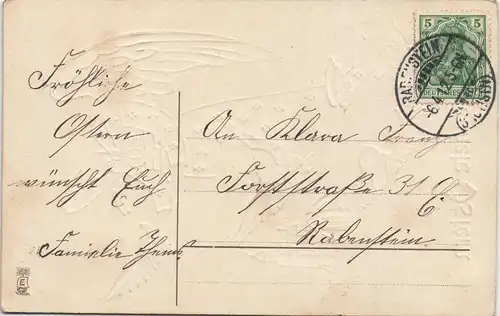 Fröhliche
Ostern
wünscht Euch
Familie
An Klara Franz
Forststraße 31 E.
Rabenstein.
5 5
DEUTSCHES REICH
RABENSTEIN
(SACHSEN)